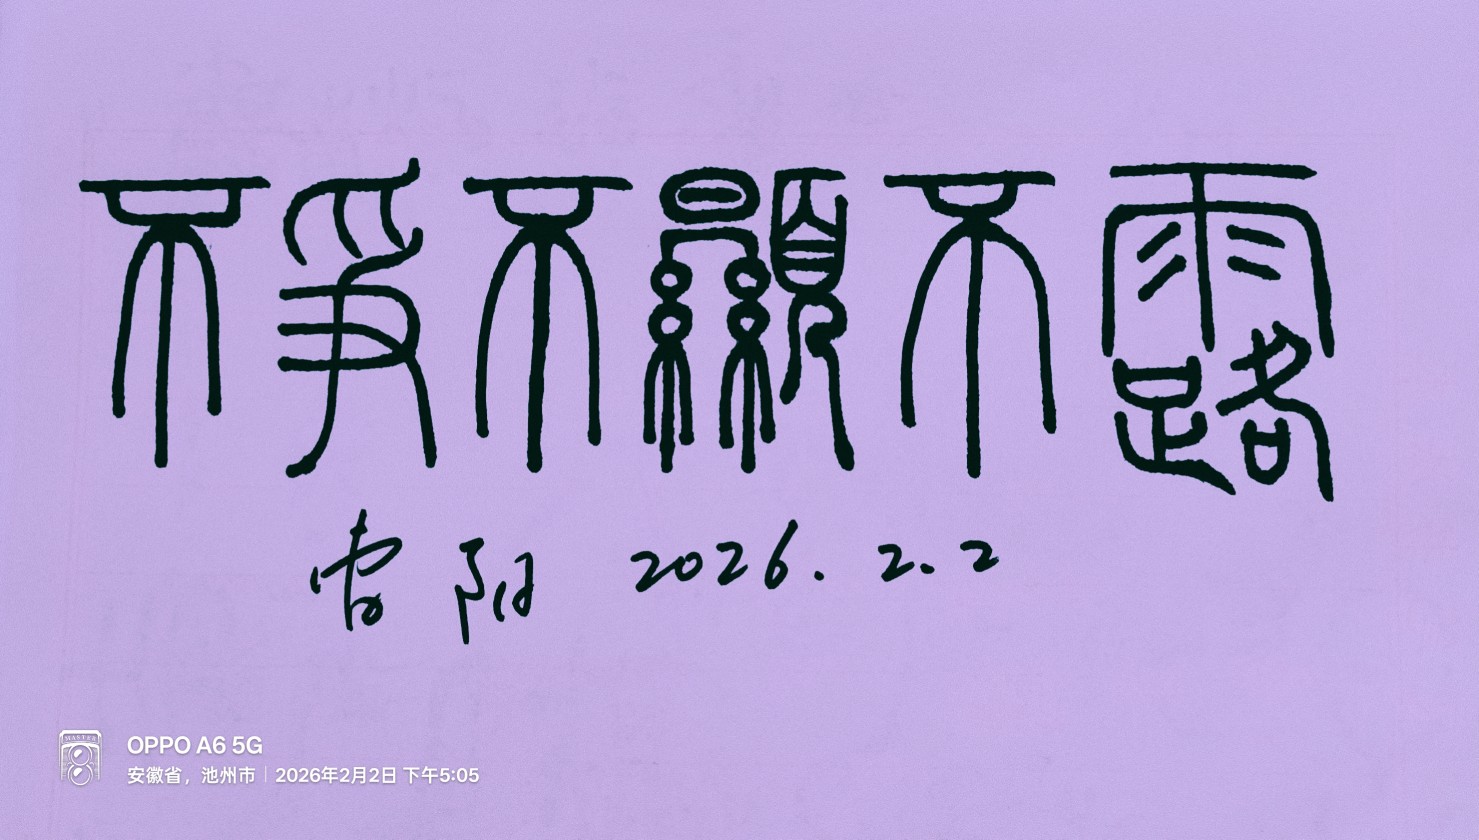 不爭不顯不露
雷阳 2026.2.2
MASTER
OPPO A6 5G
安徽省，池州市 | 2026年2月2日 下午5:05